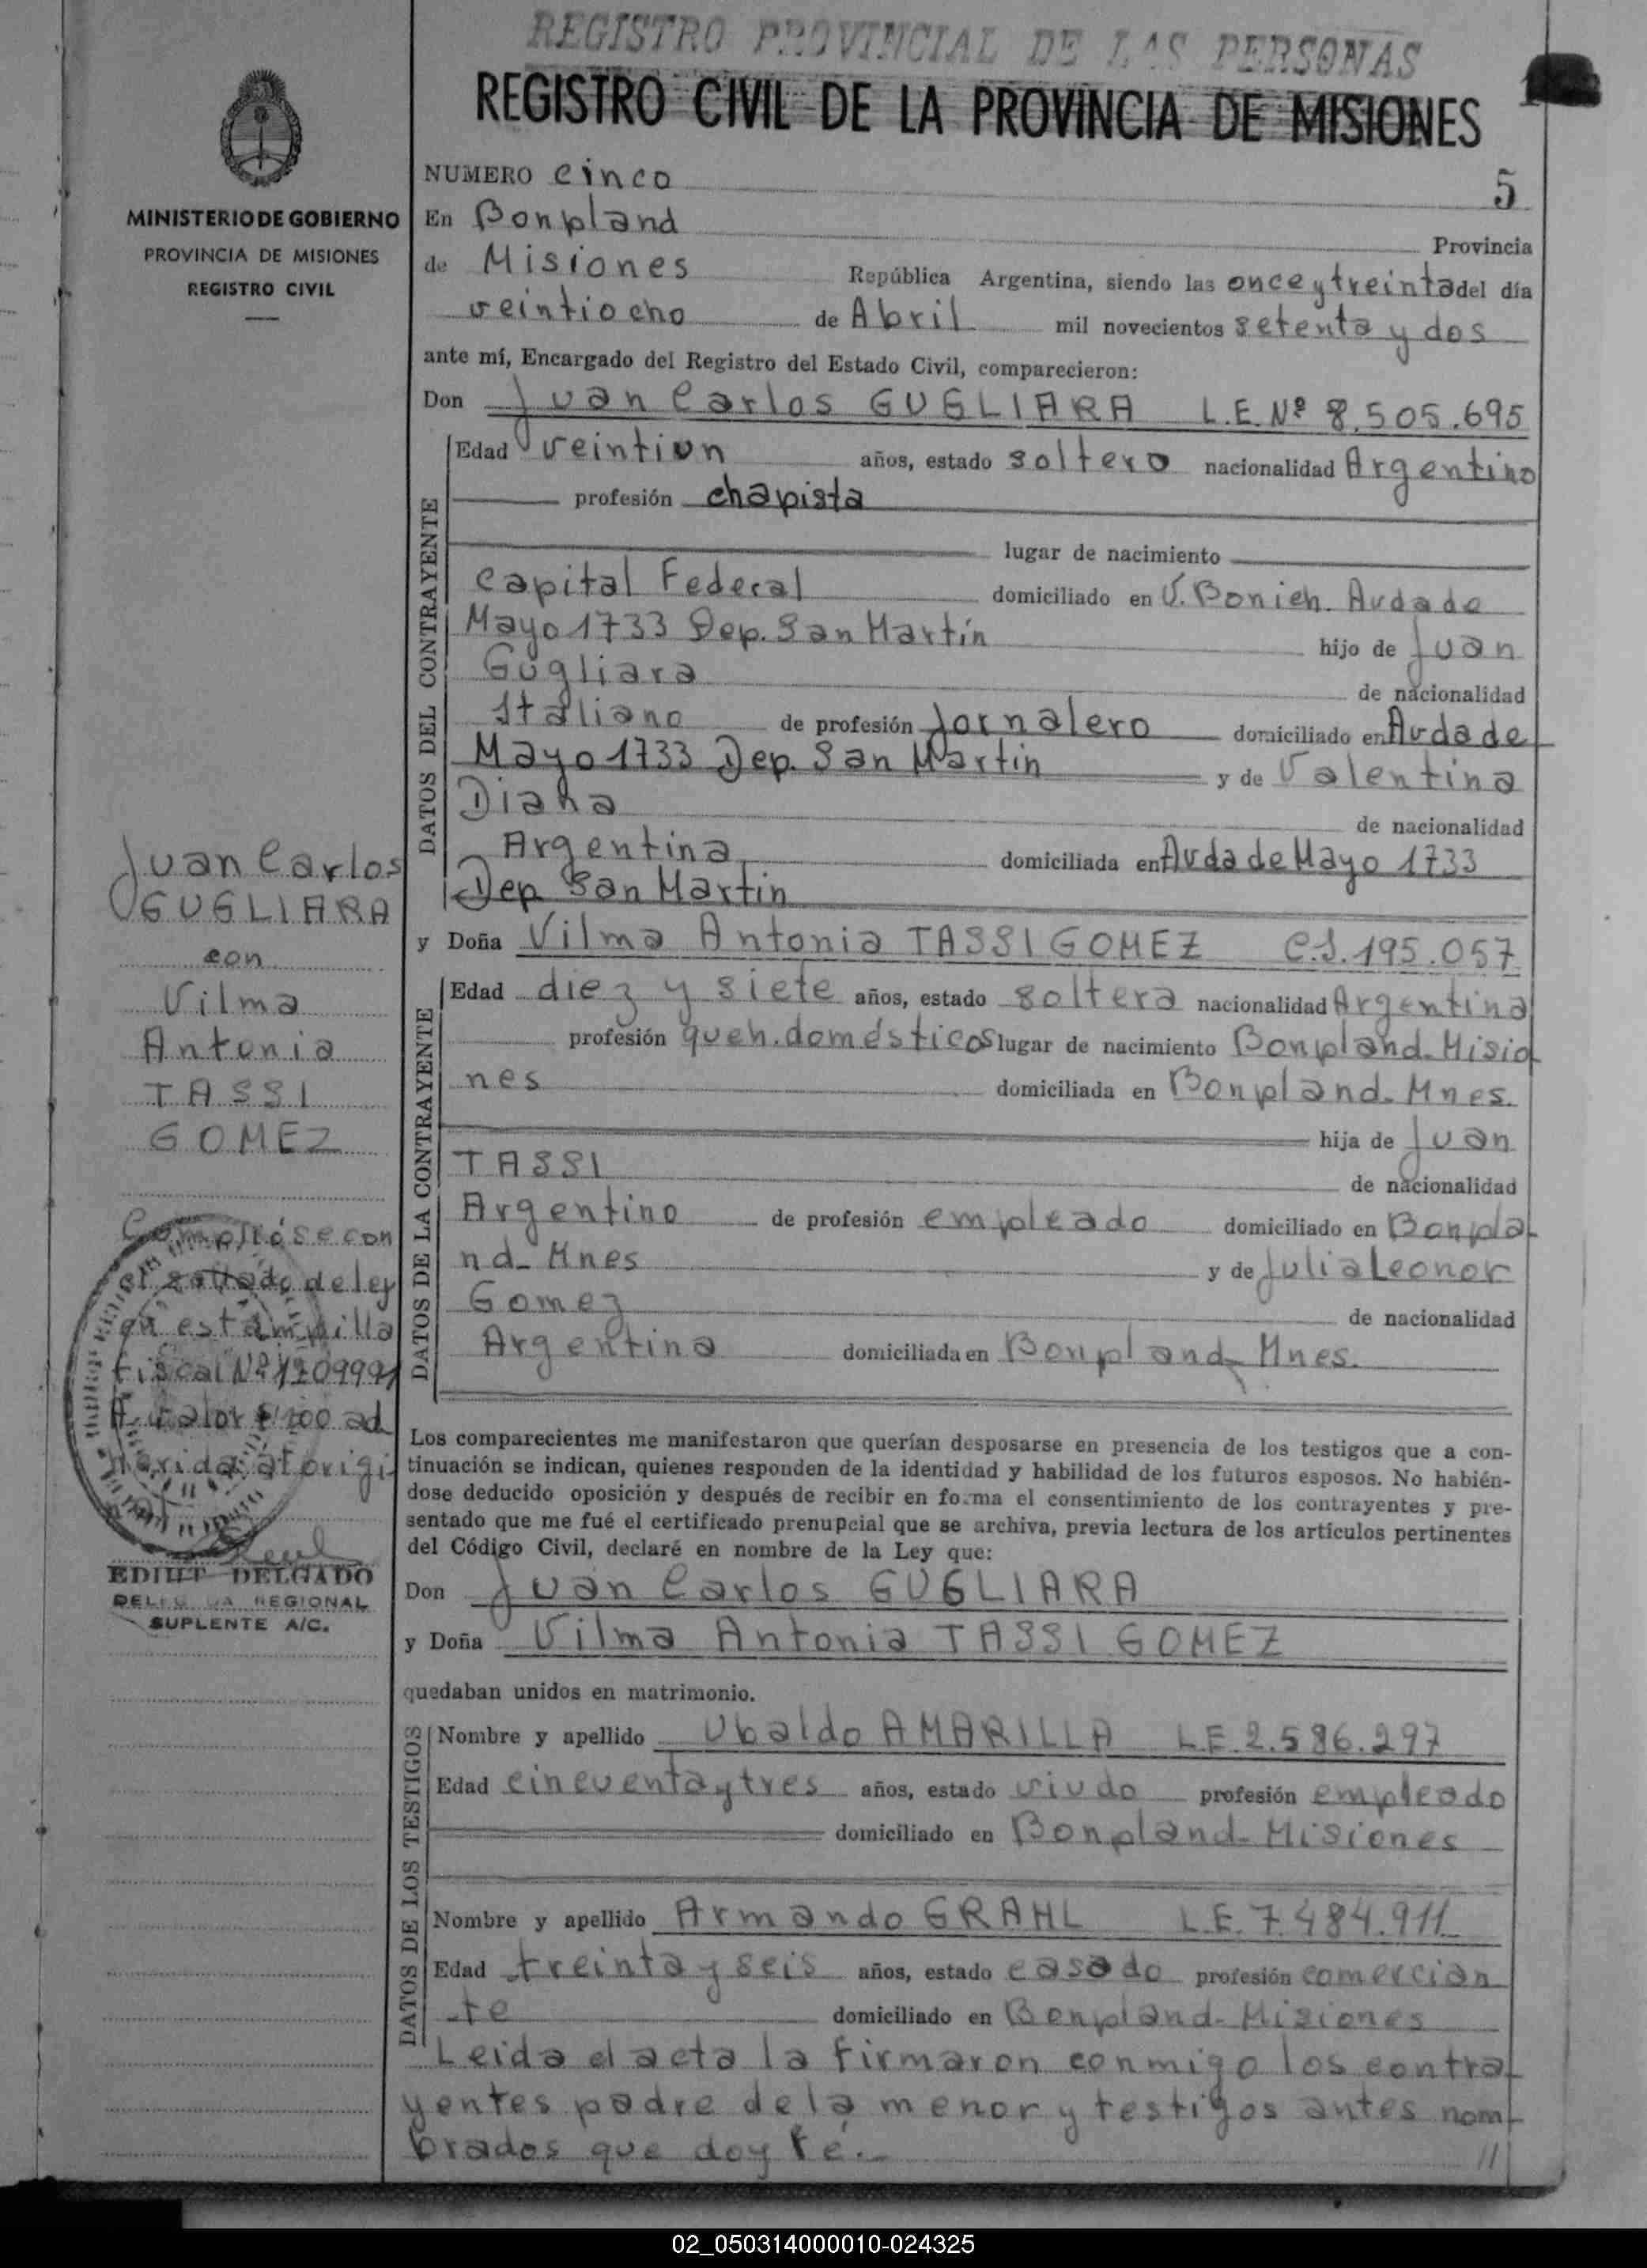 REGISTRO PROVINCIAL DE LAS PERSONAS
REGISTRO CIVIL DE LA PROVINCIA DE MISIONES
MINISTERIO DE GOBIERNO
PROVINCIA DE MISIONES
REGISTRO CIVIL
NUMERO cinco 5
En Bonpland Provincia
de Misiones República Argentina, siendo las once y treinta del día
veintiocho de Abril mil novecientos setenta y dos
ante mí, Encargado del Registro del Estado Civil, comparecieron:
Don Juan Carlos GUGLIARA L.E. Nº 8.505.695
DATOS DEL CONTRAYENTE
Edad veintiun años, estado soltero nacionalidad Argentino
profesión chapista
lugar de nacimiento
Capital Federal domiciliado en V. Bonich. Avda de
Mayo 1733 Dep. San Martín hijo de Juan
Gugliara de nacionalidad
Italiano de profesión Jornalero domiciliado en Avda de
Mayo 1733 Dep. San Martin y de Valentina
Diana de nacionalidad
Argentina domiciliada en Avda de Mayo 1733
Dep San Martin
y Doña Vilma Antonia TASSI GOMEZ C.I. 195.057
DATOS DE LA CONTRAYENTE
Edad diez y siete años, estado soltera nacionalidad Argentina
profesión queh. domésticos lugar de nacimiento Bonpland-Misio
nes domiciliada en Bonpland-Mnes.
hija de Juan
TASSI de nacionalidad
Argentino de profesión empleado domiciliado en Bonpla-
nd-Mnes y de Julia Leonor
Gomez de nacionalidad
Argentina domiciliada en Bonpland-Mnes.
Los comparecientes me manifestaron que querían desposarse en presencia de los testigos que a con-
tinuación se indican, quienes responden de la identidad y habilidad de los futuros esposos. No habién-
dose deducido oposición y después de recibir en forma el consentimiento de los contrayentes y pre-
sentado que me fué el certificado prenupcial que se archiva, previa lectura de los artículos pertinentes
del Código Civil, declaré en nombre de la Ley que:
Don Juan Carlos GUGLIARA
y Doña Vilma Antonia TASSI GOMEZ
quedaban unidos en matrimonio.
DATOS DE LOS TESTIGOS
Nombre y apellido Ubaldo AMARILLA L.E. 2.586.297
Edad cincuenta y tres años, estado viudo profesión empleado
domiciliado en Bonpland-Misiones
Nombre y apellido Armando GRAHL L.E. 7.484.911
Edad treinta y seis años, estado casado profesión comercian
-te domiciliado en Bonpland-Misiones
Leida el acta la firmaron conmigo los contra-
yentes padre de la menor y testigos antes nom-
brados que doy fé.-
//
Juan Carlos
GUGLIARA
con
Vilma
Antonia
TASSI
GOMEZ
Complióse con
el sellado de ley
en estampilla
fiscal Nº
valor $ 100 ad
herida al origi-
nal
EDIHT DELGADO
DELEGADA REGIONAL
SUPLENTE A/C.
02_050314000010-024325